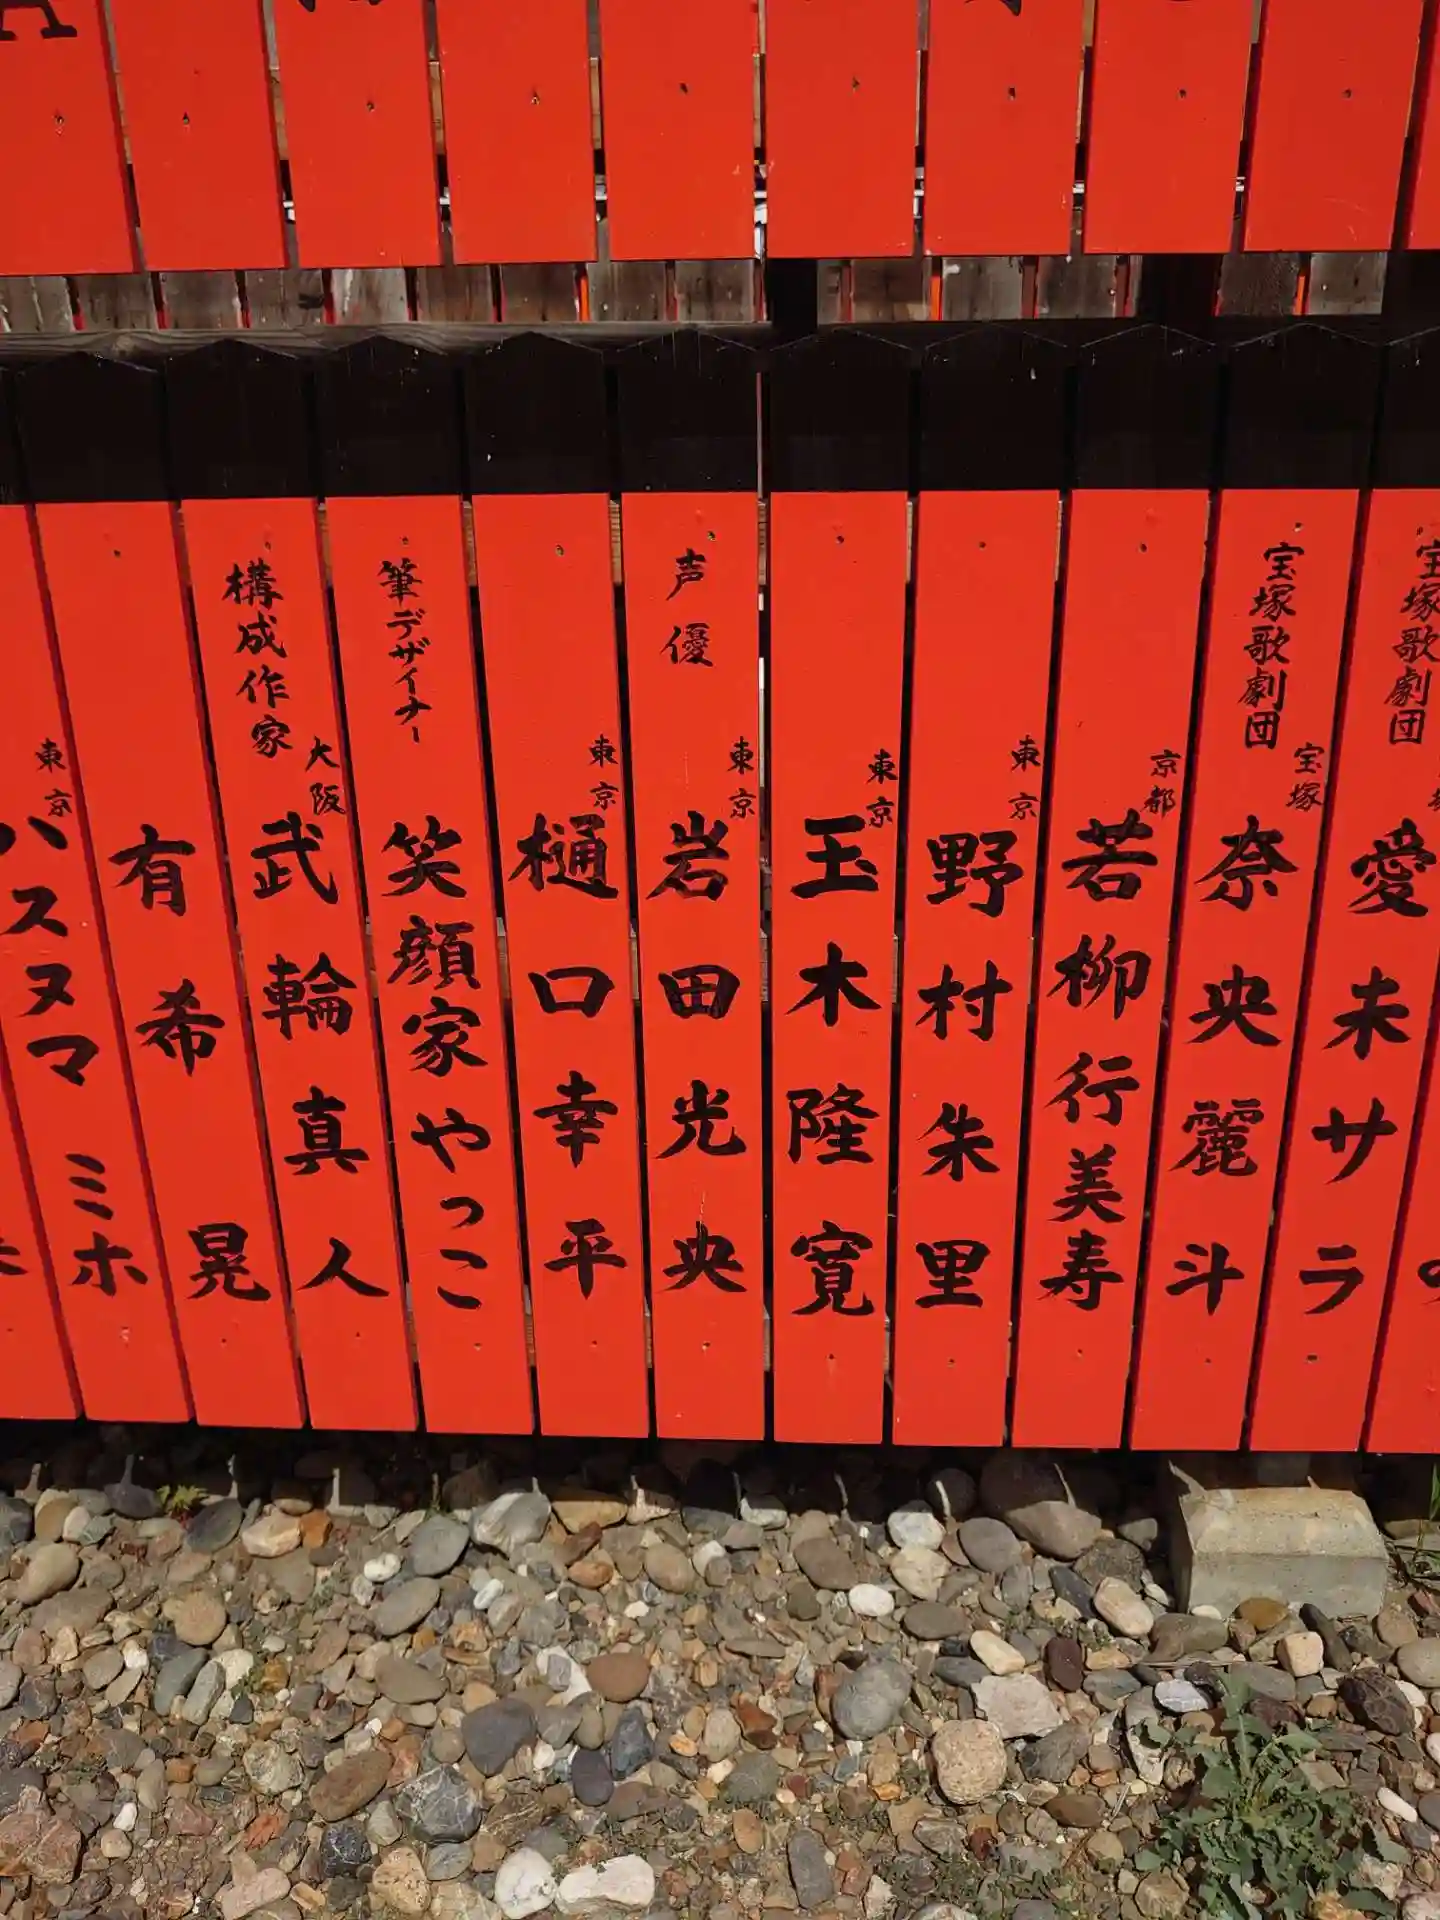 宝塚歌劇団
愛未サラ
宝塚歌劇団
宝塚
奈央麗斗
京都
若柳行美寿
東京
野村朱里
東京
玉木隆寛
声優
東京
岩田光央
東京
樋口幸平
筆デザイナー
笑顔家やっこ
構成作家
大阪
武輪真人
有希晃
東京
ハスヌマミホ